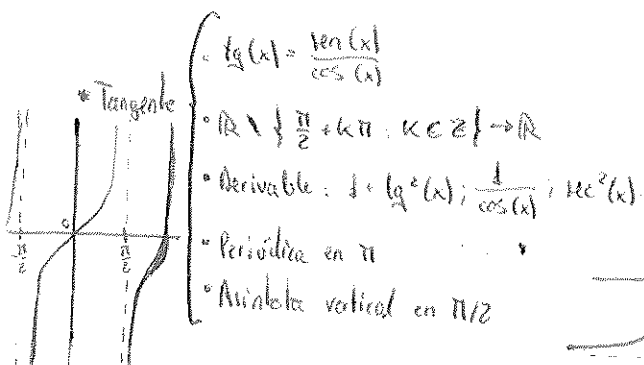 * Tangente
• tg(x) = sen(x)/cos(x)
• ℝ \ { π/2 + kπ : k ∈ ℤ } → ℝ
• Derivable : 1 + tg²(x) ; 1/cos(x) ; sec²(x).
• Periódica en π
• Asíntota vertical en π/2
0
-π/2
π/2